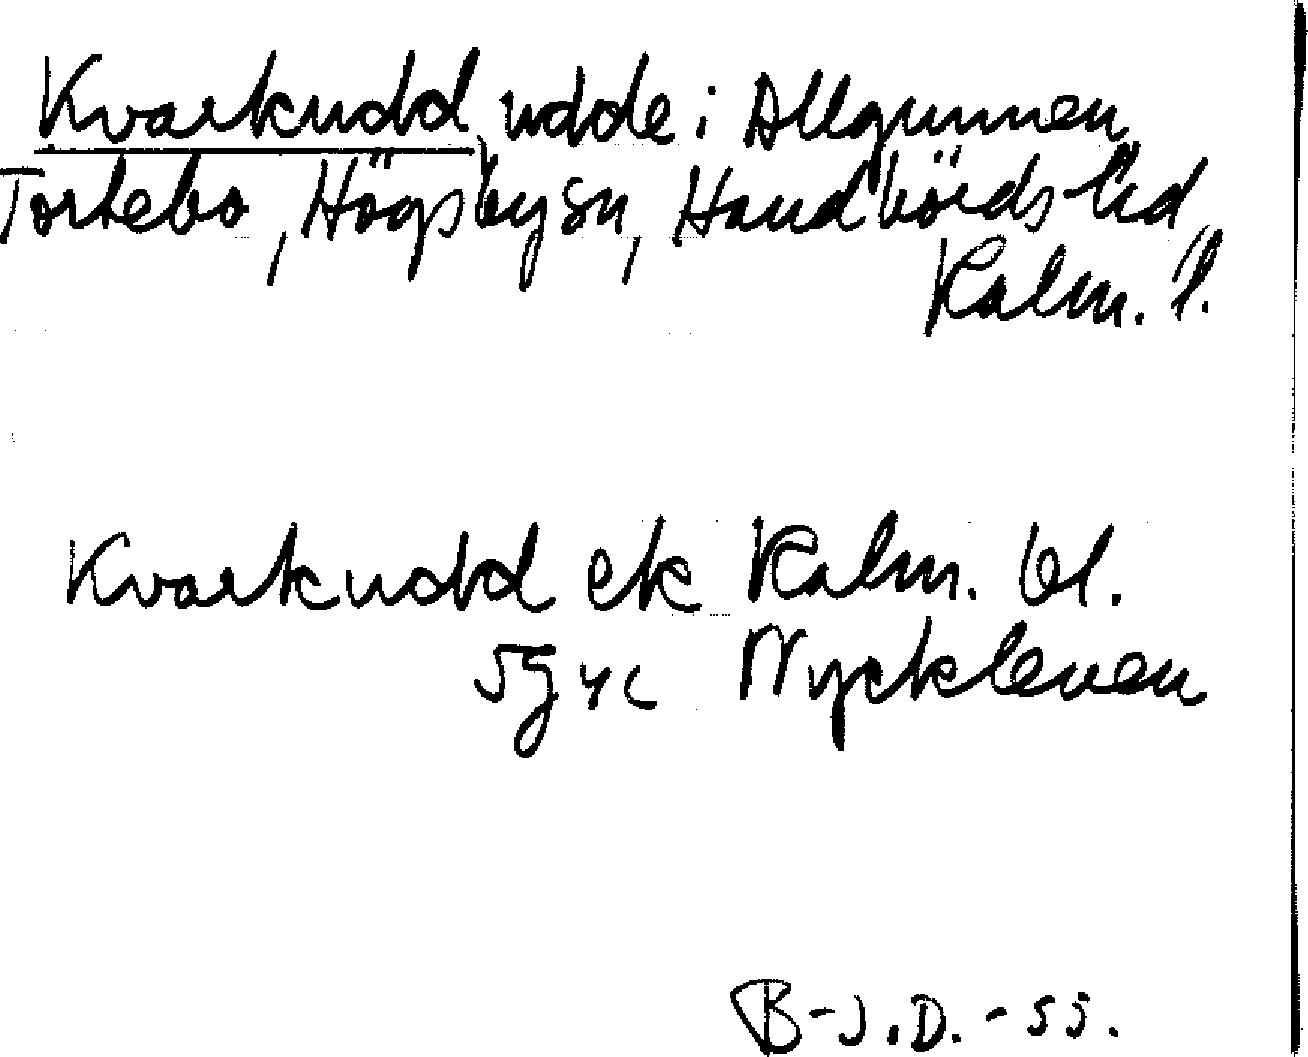 Kvarkudd, udde i Allgunnen,
Torlebo, Högsby sn, Handbörds hd,
Kalm. l.
Kvarkudd ek Kalm. bl.
5g4c Nyckleven
B-J.D.-55.